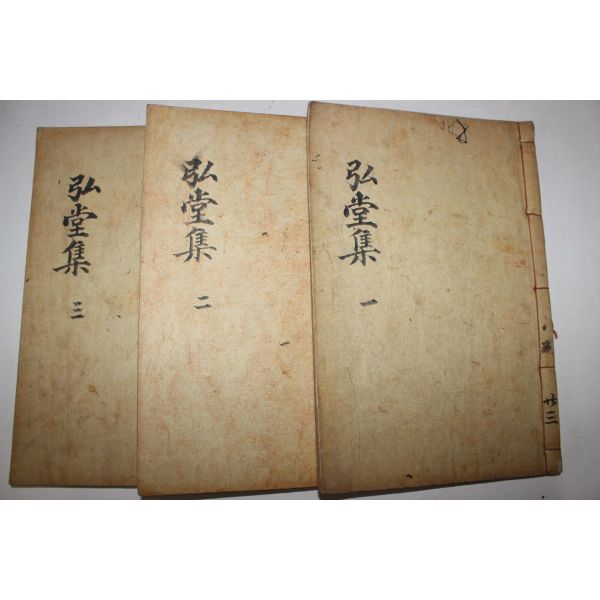 弘堂集
三
弘堂集
二
弘堂集
一
共三